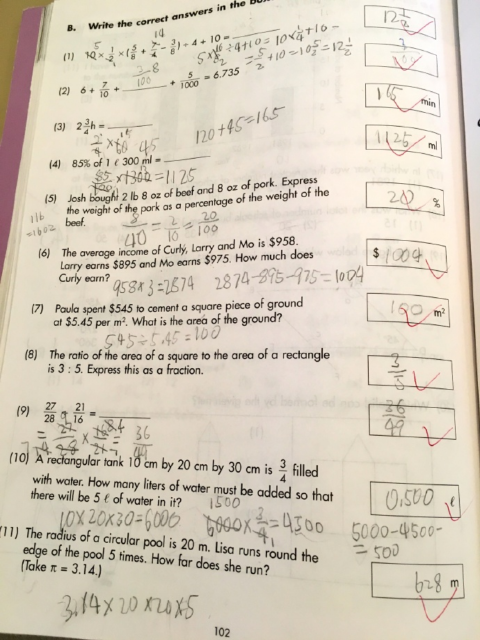 B. Write the correct answers in the
(1) 10 × 1/2 × (5/8 + 7/4 - 3/8) ÷ 4 + 10 =
12 1/2
(2) 6 + 7/10 + ____ + 5/1000 = 6.735
(3) 2 3/4 h = ____
120 + 45 = 165
165 min
(4) 85% of 1 ℓ 300 ml = ____
= 1125
1125 ml
(5) Josh bought 2 lb 8 oz of beef and 8 oz of pork. Express
the weight of the pork as a percentage of the weight of the
beef.
8/40 = 2/10 = 20/100
20 %
(6) The average income of Curly, Larry and Mo is $958.
Larry earns $895 and Mo earns $975. How much does
Curly earn?
958×3=2874 2874-895-975=1004
$ 1004
(7) Paula spent $545 to cement a square piece of ground
at $5.45 per m². What is the area of the ground?
545÷5.45=100
100 m²
(8) The ratio of the area of a square to the area of a rectangle
is 3 : 5. Express this as a fraction.
3/5
(9) 27/28 ÷ 21/16 = ____
36/49
36/49
(10) A rectangular tank 10 cm by 20 cm by 30 cm is 3/4 filled
with water. How many liters of water must be added so that
there will be 5 ℓ of water in it?
1500
10×20×30=6000 6000×3/4=4500
0.500 ℓ
5000-4500-
=500
(11) The radius of a circular pool is 20 m. Lisa runs round the
edge of the pool 5 times. How far does she run?
(Take π = 3.14.)
3.14×20×20×5
628 m
102